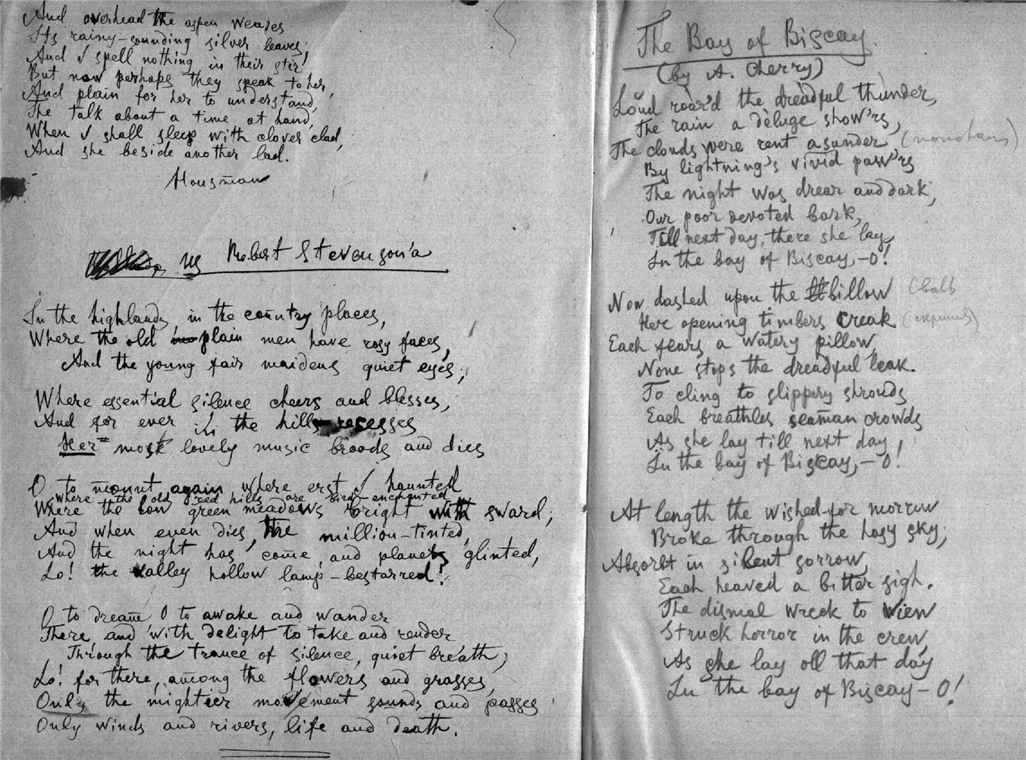 And overhead the aspen weaves
Its rainy-sounding silver leaves,
And I spell nothing in their stir,
But now perhaps they speak to her,
And plain for her to understand,
The talk about a time at hand,
When I shall sleep with clover clad,
And she beside another lad.
Housman
из Robert Stevenson'a
In the highlands in the country places,
Where the old plain men have rosy faces,
And the young fair maidens quiet eyes,
Where essential silence cheers and blesses,
And for ever in the hill recesses
Her most lovely music broods and dies
O to mount again where erst I haunted
Where the old red hills are bird-enchanted
Where the low green meadows bright with sward;
And when even dies, the million-tinted,
And the night has come, and planets glinted,
Lo! the valley hollow lamp-bestarred!
O to dream O to awake and wander
There and with delight to take and render
Through the trance of silence, quiet breath;
Lo! for there, among the flowers and grasses,
Only the mightier movement sounds and passes
Only winds and rivers, life and death.
The Bay of Biscay.
(by A. Cherry)
Loud roar'd the dreadful thunder,
The rain a deluge show'rs,
The clouds were rent asunder
By lightning's vivid pow'rs
The night was drear and dark,
Our poor devoted bark,
Till next day, there she lay,
In the bay of Biscay,-O!
Now dashed upon the billow
Her opening timbers creak
Each fears a watery pillow,
None stops the dreadful leak.
To cling to slippery shrouds
Each breathles seaman crowds
As she lay till next day,
In the bay of Biscay,-O!
At length the wished-for morrow
Broke through the hazy sky;
Absorbt in silent sorrow,
Each heaved a bitter sigh.
The dismal wreck to view
Struck horror in the crew,
As she lay all that day
In the bay of Biscay-O!